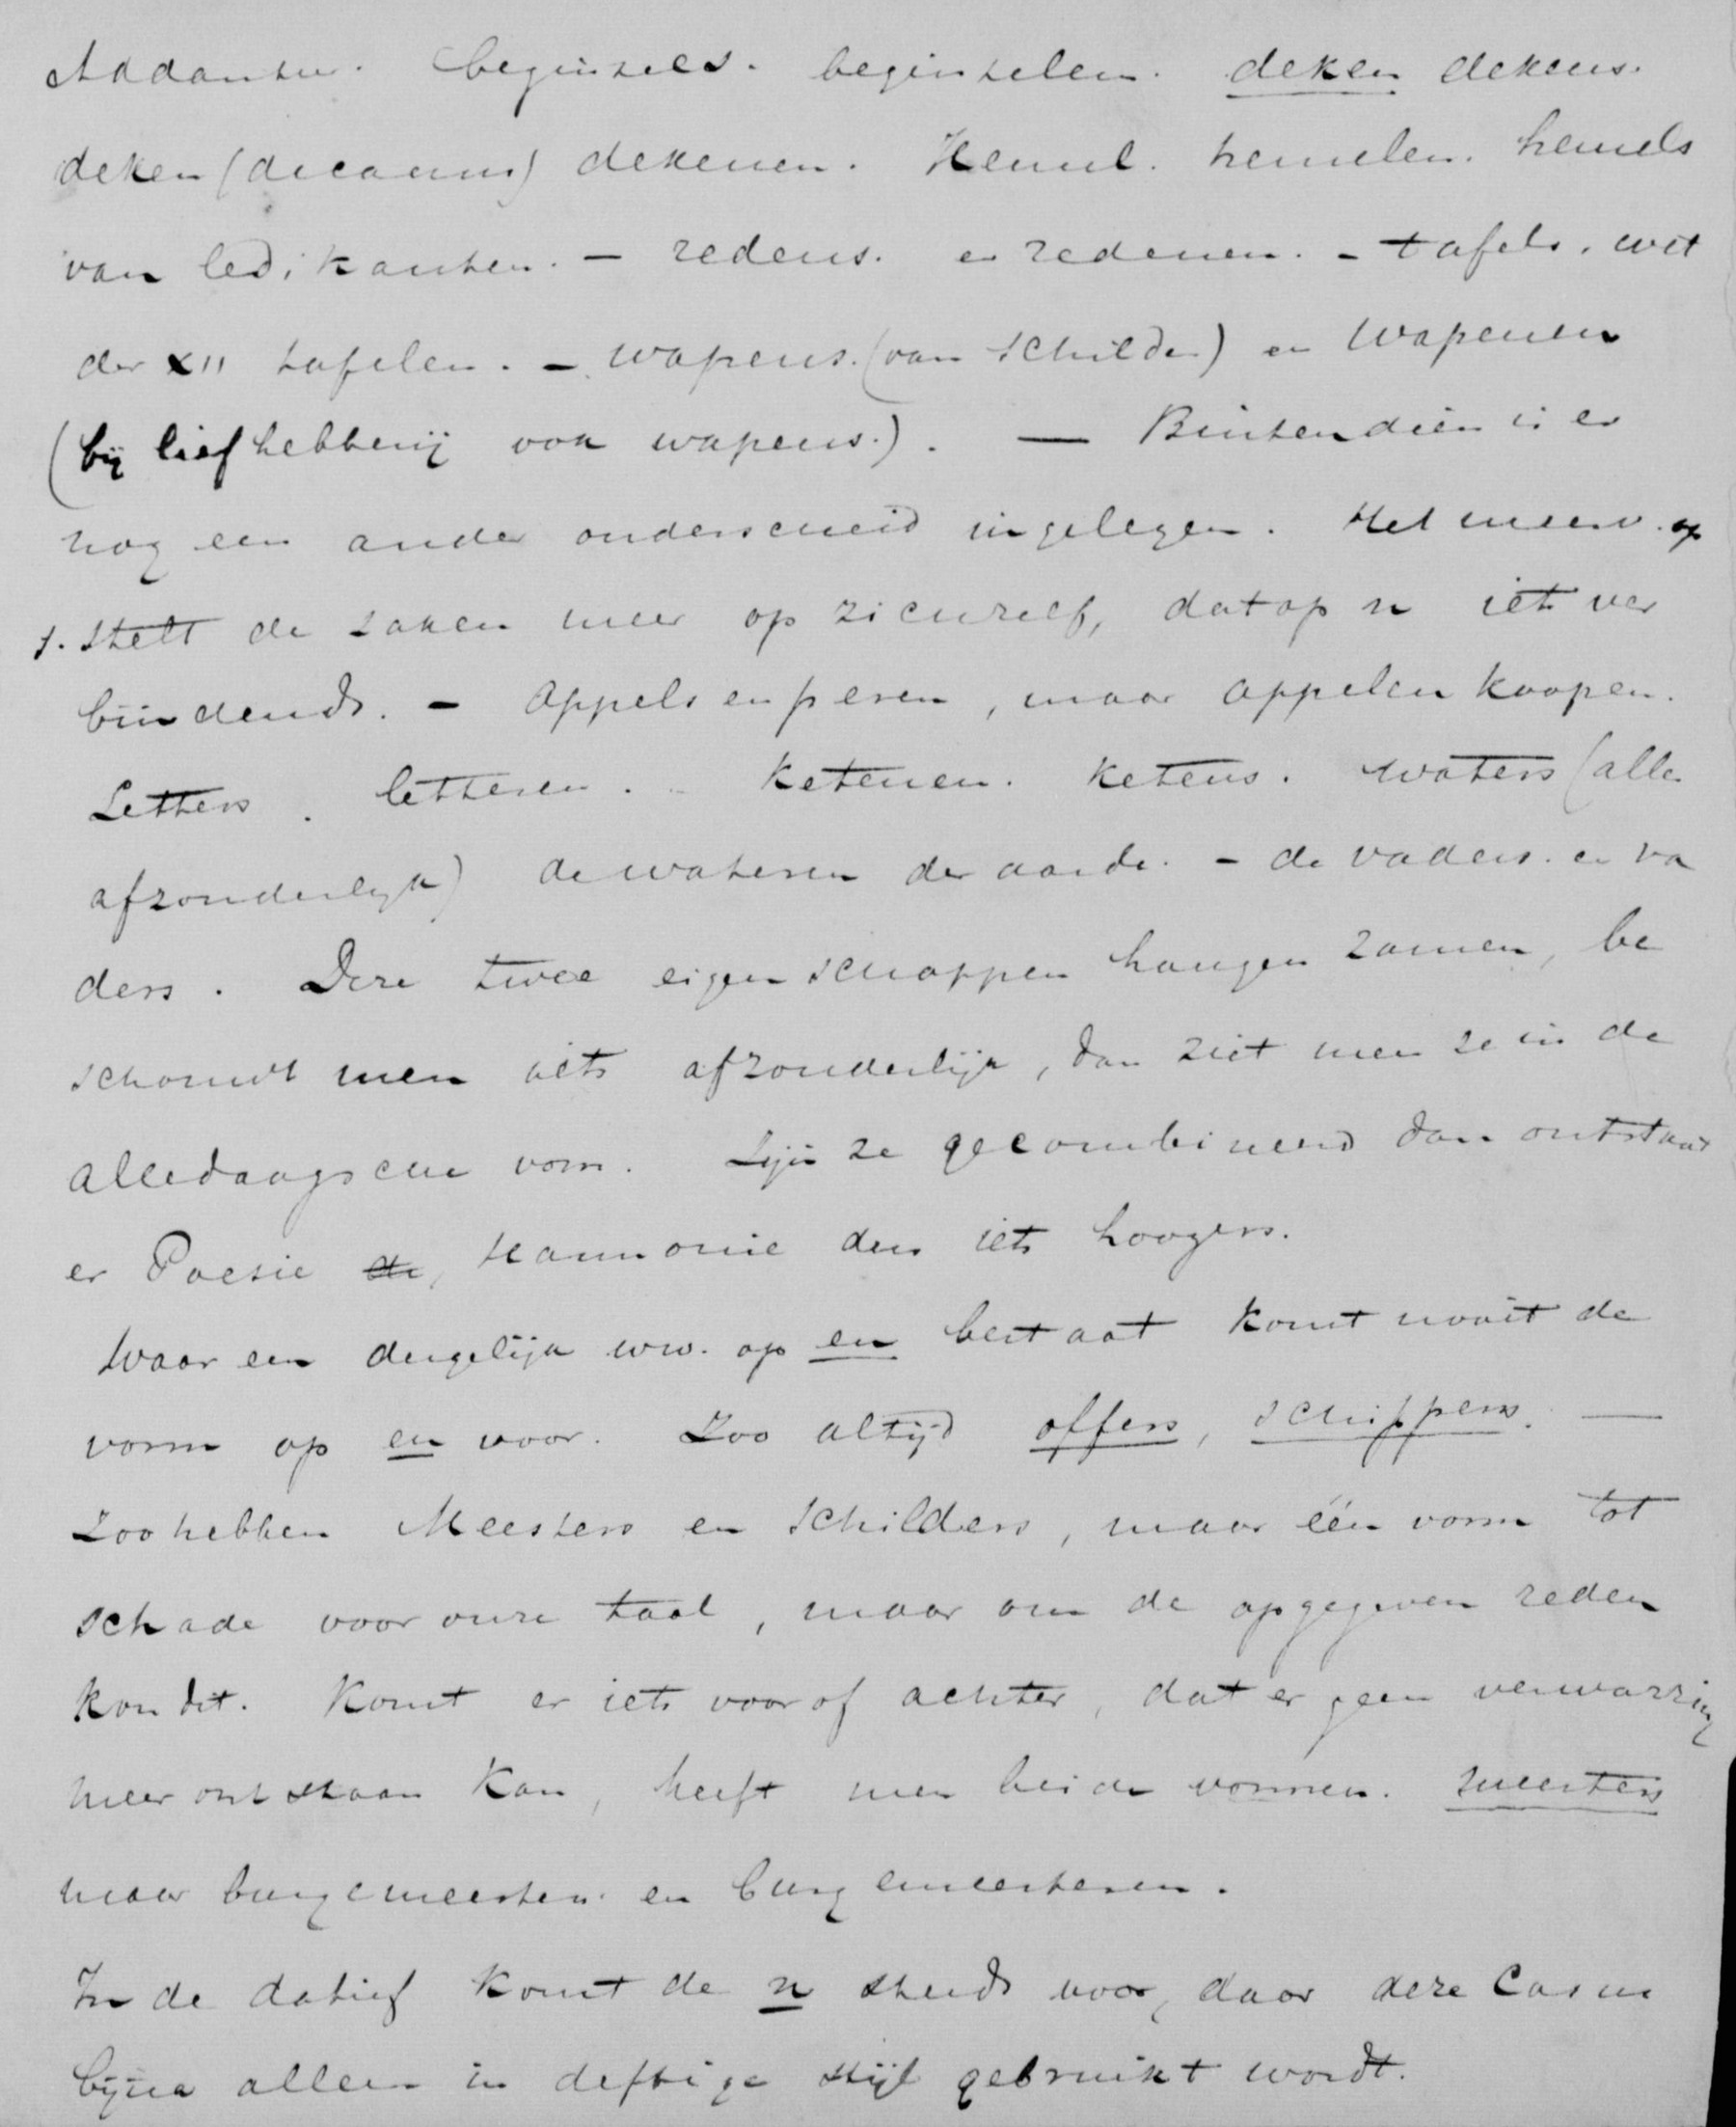 beginsels. beginselen. deken dekens.
deken (decanus) dekenen. Hemel. hemelen. hemels
van ledikanten. – redens. en redenen. – tafels. wet
der XII tafelen. – wapens. (van schilden) en Wapenen
(bij liefhebberij ook wapens.). — Buitendien is er
nog een ander onderscheid in gelegen. Het meerv. op
s. stelt de zaken meer op zichzelf, dat op n iets ver
bindends. – Appels en peren, maar appelen koopen.
Letters. letteren. – ketenen. ketens. waters (alle
afzonderlijk) de wateren der aarde. – de vaders. en va
ders. Deze twee eigenschappen hangen zamen, be
schouwt men iets afzonderlijk, dan ziet men ze in de
alledaagsche vorm. Zijn ze gecombineerd dan ontstaat
er Poesie de, Harmonie dus iets hoogers.
Waar een dergelijk ww. op en bestaat komt nooit de
vorm op en voor. Zoo altijd offers, schippers. —
Zoo hebben Meesters en Schilders, maar één vorm tot
schade voor onze taal, maar om de opgegeven reden
kon dit. Komt er iets voor of achter, dat er geen verwarring
meer ontstaan kan, heeft men beide vormen. meesters
maar burgemeesters en burgemeesteren.
In de datief komt de n steeds voor, daar deze Casus
bijna alleen in deftige stijl gebruikt wordt.